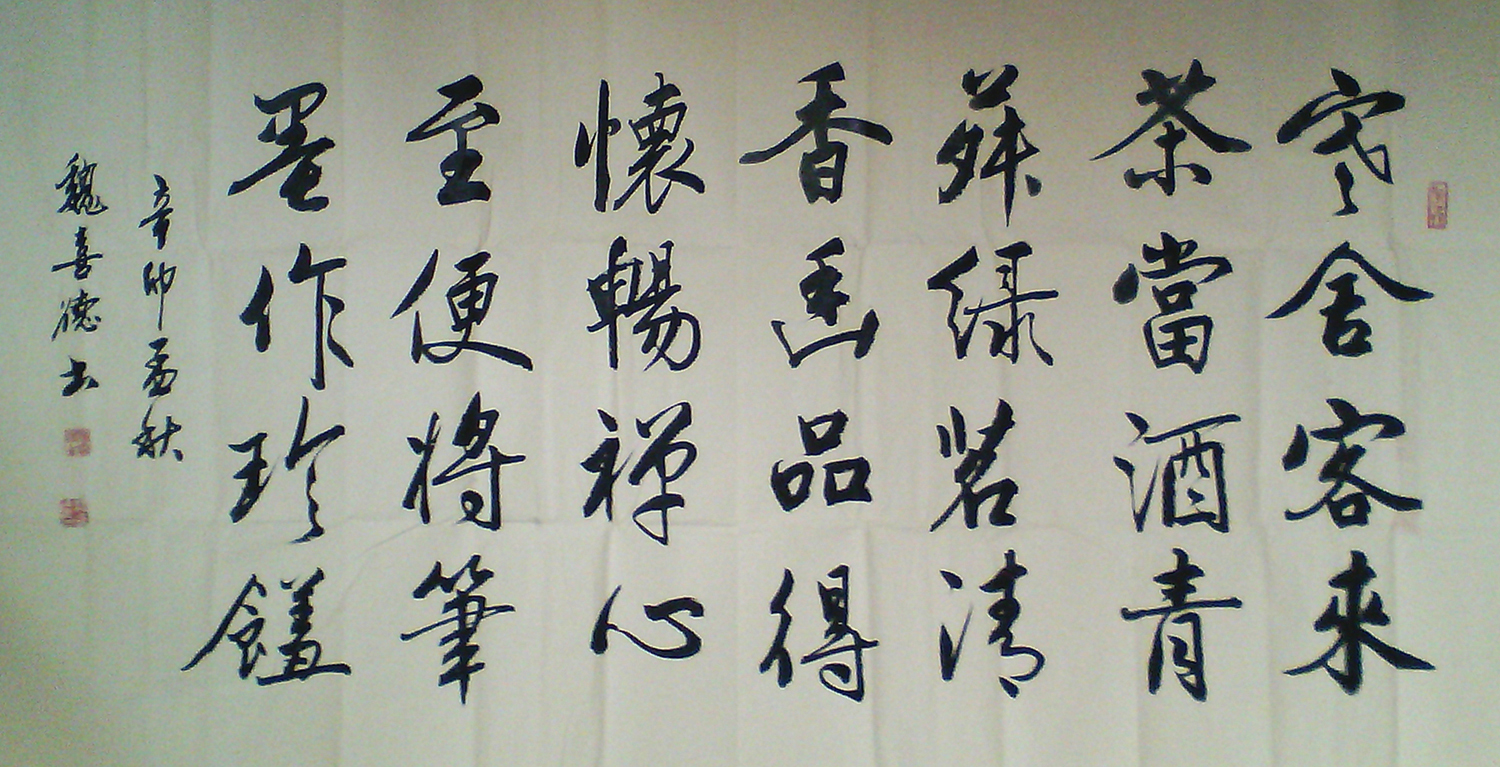 寒舍客來
茶當酒青
荈綠茗清
香幽品得
懷暢禪心
至便將筆
墨作珍饈
辛卯孟秋
魏喜德书